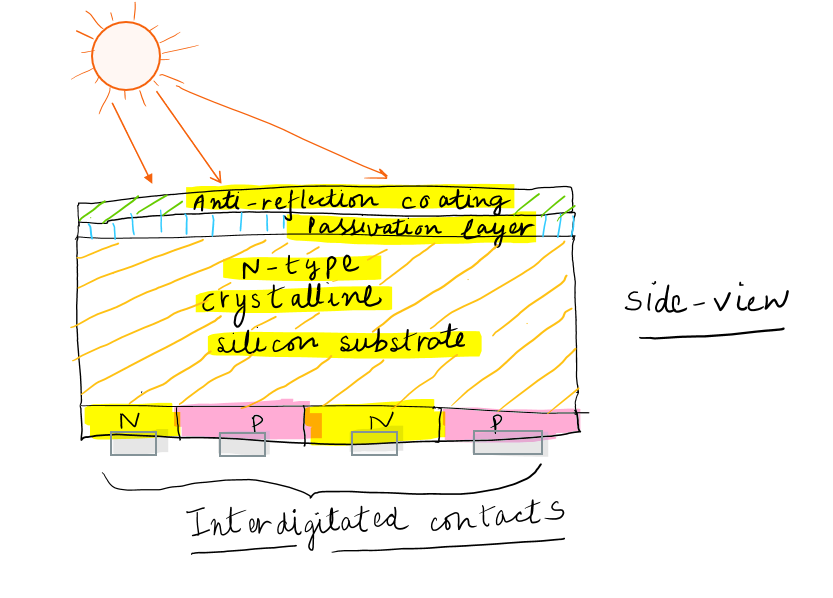 Anti-reflection coating
Passivation layer
N-type
crystalline
silicon substrate
side-view
N P N P
Interdigitated contacts